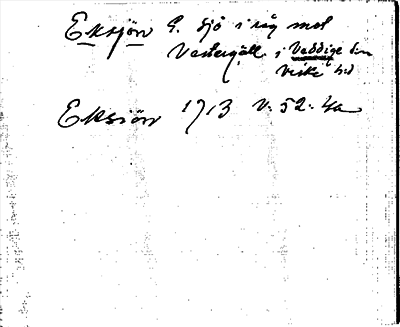 Eksjön G. sjö i råg mot
Västergötl. i Veddige sn
Viske hd
Eksiön 1713 V. 52. 4a